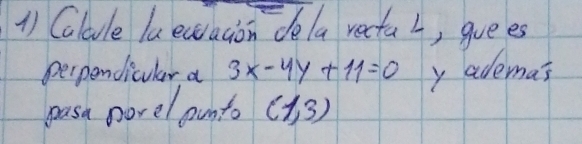 1) Calcule la ecuación de la recta L, que es
perpendicular a 3x-4y+11=0 y además
pasa por el punto (1,3)